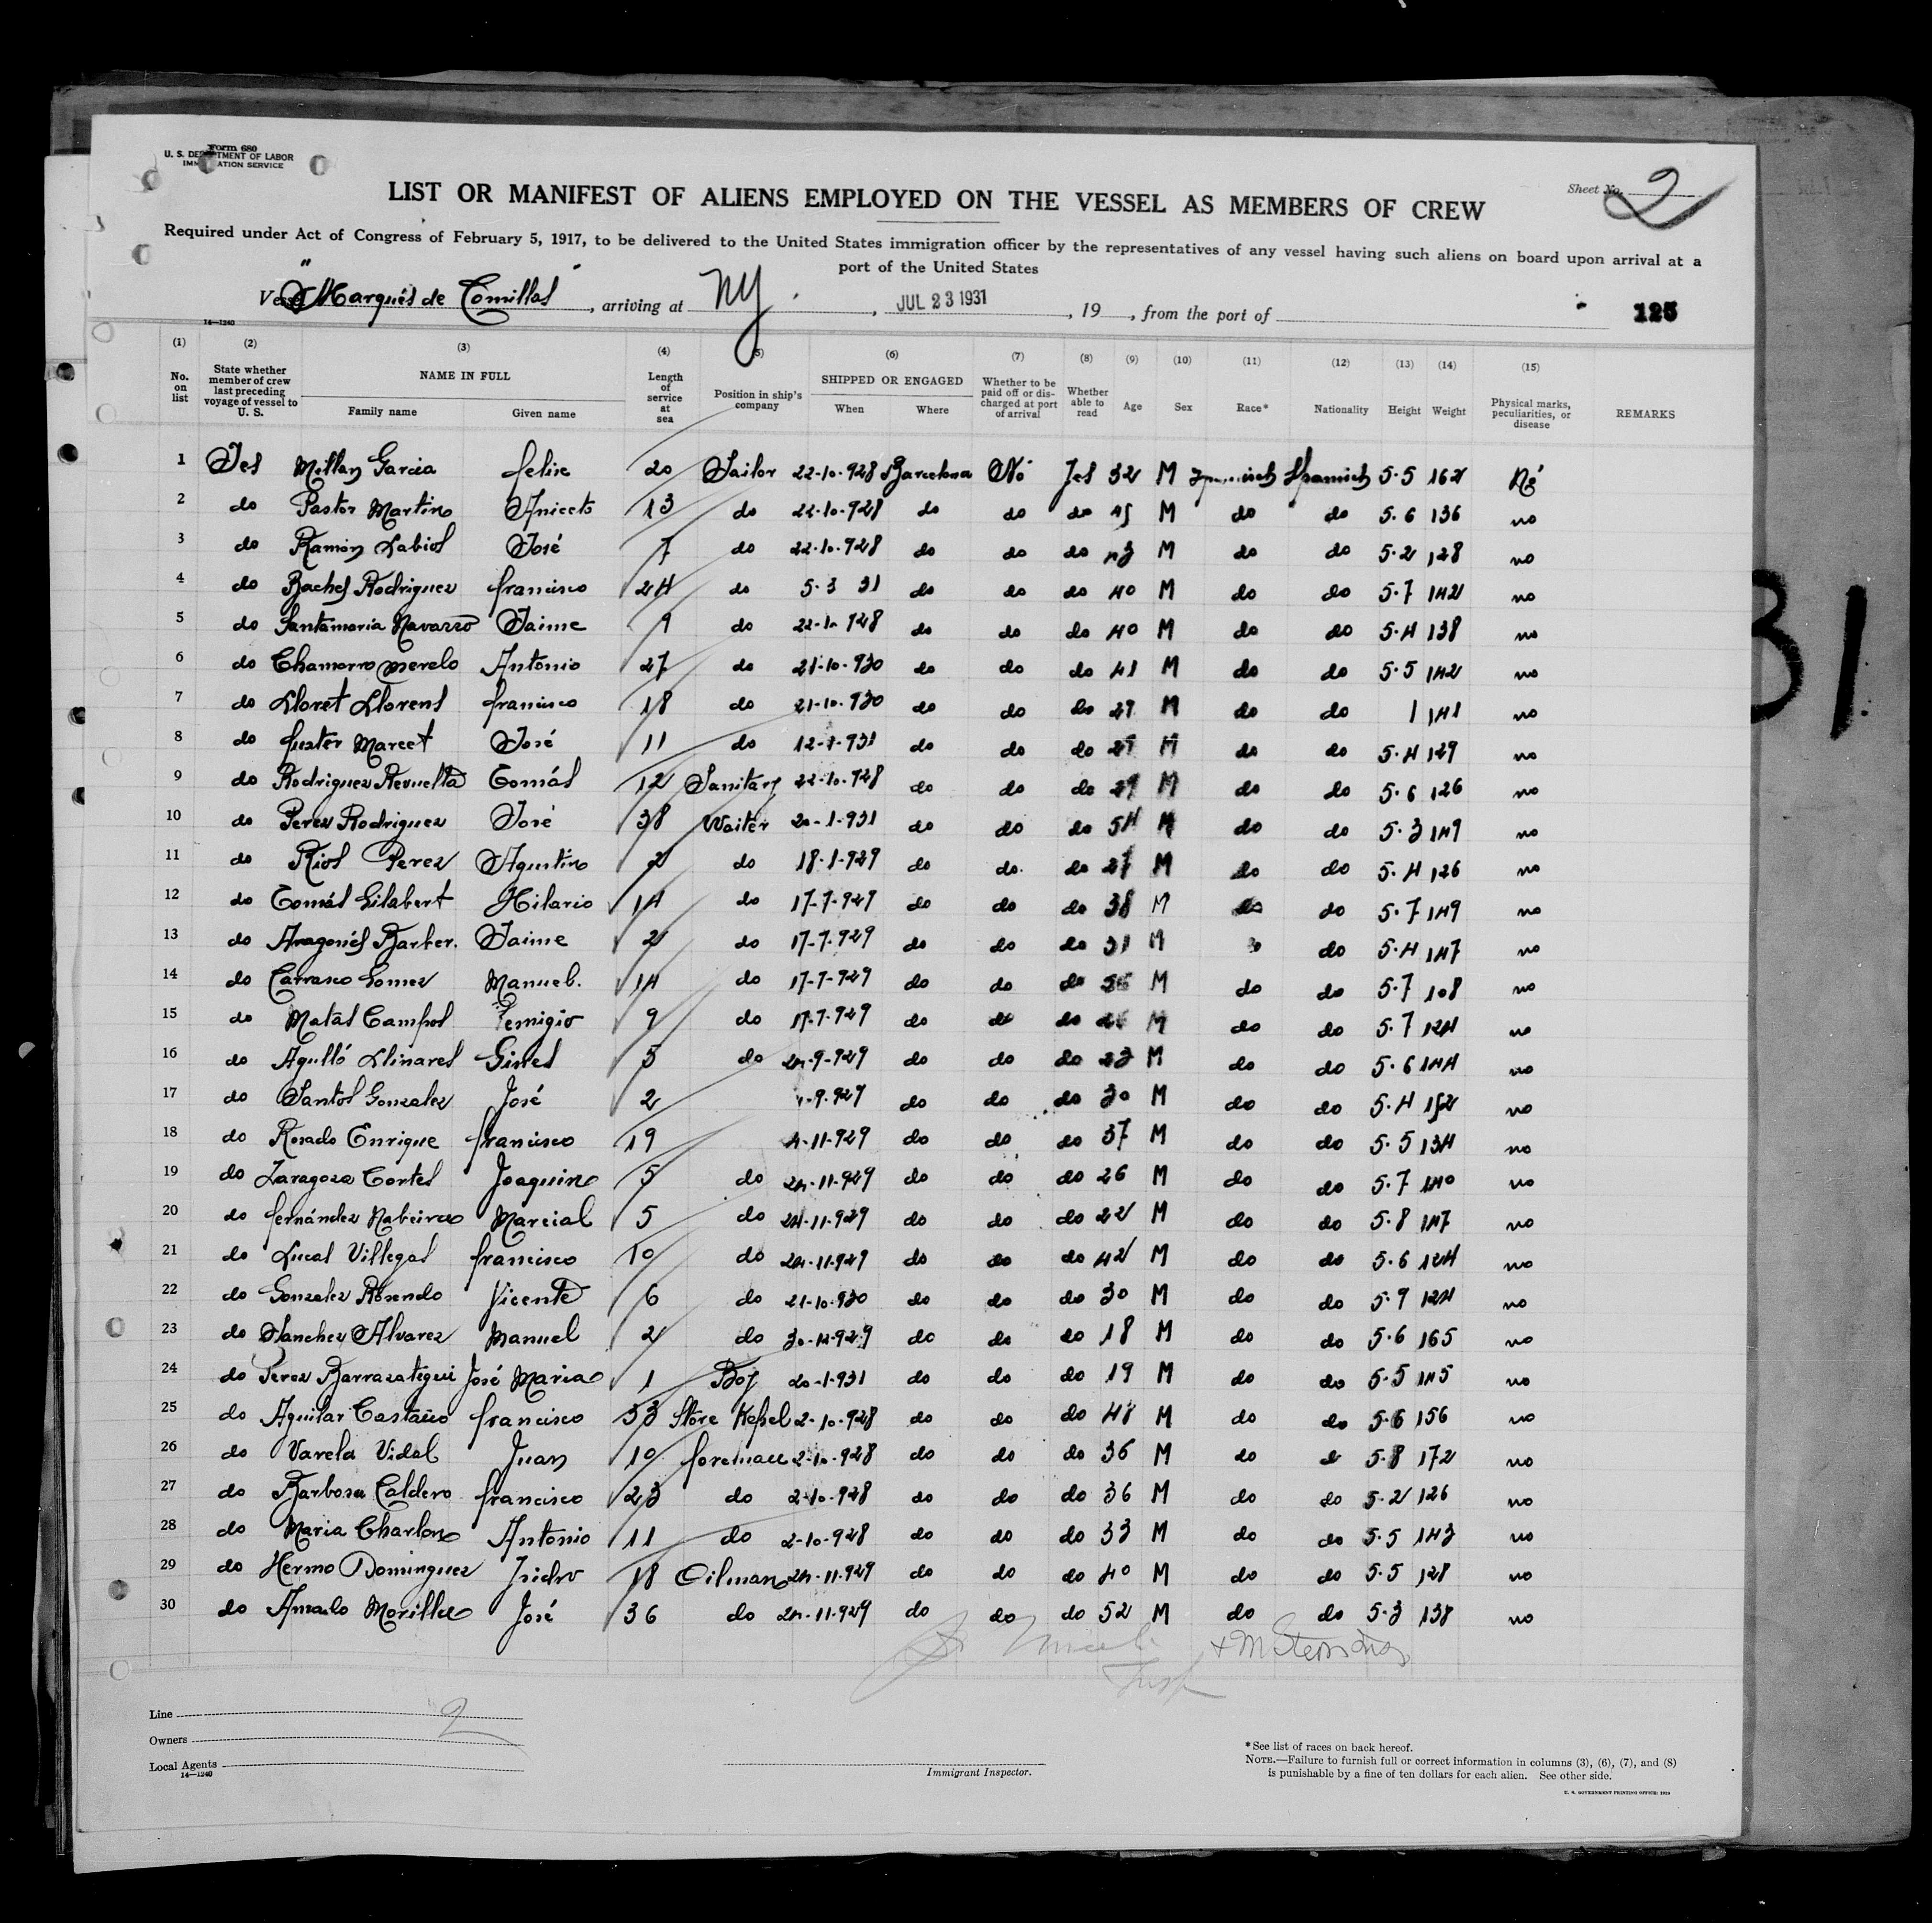 Form 680
U. S. DEPARTMENT OF LABOR
IMMIGRATION SERVICE
Sheet No. 2
LIST OR MANIFEST OF ALIENS EMPLOYED ON THE VESSEL AS MEMBERS OF CREW
Required under Act of Congress of February 5, 1917, to be delivered to the United States immigration officer by the representatives of any vessel having such aliens on board upon arrival at a
port of the United States
Vessel "Marqués de Comillas", arriving at NY., JUL 23 1931, 19, from the port of
125
14—1240
(1) (2) (3) (4) (5) (6) (7) (8) (9) (10) (11) (12) (13) (14) (15)
No. on list State whether member of crew last preceding voyage of vessel to U. S. NAME IN FULL Family name Given name Length of service at sea Position in ship's company SHIPPED OR ENGAGED When Where Whether to be paid off or discharged at port of arrival Whether able to read Age Sex Race* Nationality Height Weight Physical marks, peculiarities, or disease REMARKS
1 Yes Millan Garcia felix 20 Sailor 22-10-928 Barcelona No Yes 32 M Spanish Spanish 5.5 162 No
2 do Pastor Martino Aniceto 13 do 22-10-928 do do do 45 M do do 5.6 136 no
3 do Ramón Labios José 7 do 22-10-928 do do do 43 M do do 5.2 128 no
4 do Baches Rodriguez francisco 24 do 5.3 31 do do do 40 M do do 5.7 142 no
5 do Santamaria Navarro Jaime 9 do 22-10 928 do do do 40 M do do 5.4 138 no
6 do Chamorro Merelo Antonio 27 do 21-10-930 do do do 41 M do do 5.5 142 no
7 do Lloret Llorens francisco 18 do 21-10-930 do do do 29 M do do 1 141 no
8 do fuster Marcet José 11 do 12-1-931 do do do 29 M do do 5.4 129 no
9 do Rodriguez Revuelta Tomás 12 Sanitary 22-10-928 do do do 29 M do do 5.6 126 no
10 do Perez Rodriguez José 38 Waiter 20-1-931 do do do 54 M do do 5.3 149 no
11 do Rios Perez Agustin 2 do 18-1-929 do do do 27 M do do 5.4 126 no
12 do Tomás Gilabert Hilario 14 do 17-7-929 do do do 38 M do do 5.7 149 no
13 do Aragonés Barber. Jaime 2 do 17-7-929 do do do 31 M do do 5.4 147 no
14 do Carrasco Gomez Manuel. 14 do 17-7-929 do do do M do do 5.7 108 no
15 do Matas Campos Remigio 9 do 17-7-929 do do do M do do 5.7 124 no
16 do Agulló Llinares Gines 5 do 24-9-929 do do do 23 M do do 5.6 144 no
17 do Santos Gonzalez José 2 -9-929 do do do 30 M do do 5.4 152 no
18 do Rosado Enrique francisco 19 4-11-929 do do do 37 M do do 5.5 134 no
19 do Zaragoza Cortes Joaquin 5 do 24-11-929 do do do 26 M do do 5.7 140 no
20 do fernández Nabeira Marcial 5 do 24-11-929 do do do 22 M do do 5.8 147 no
21 do Lucas Villegas francisco 10 do 24-11-929 do do do 42 M do do 5.6 124 no
22 do Gonzalez Rosendo Vicente 6 do 21-10-930 do do do 30 M do do 5.9 124 no
23 do Sanchez Alvarez Manuel 2 do 30-12-929 do do do 18 M do do 5.6 165 no
24 do Perez Barrazategui José Maria 1 Boy 20-1-931 do do do 19 M do do 5.5 145 no
25 do Aguilar Castaño francisco 33 Store Kepel 2-10-928 do do do 48 M do do 5.6 156 no
26 do Varela Vidal Juan 10 foremace 2-10-928 do do do 36 M do do 5.8 172 no
27 do Barbosa Caldero francisco 23 do 2-10-928 do do do 36 M do do 5.2 126 no
28 do Maria Charlon Antonio 11 do 2-10-928 do do do 33 M do do 5.5 143 no
29 do Hermo Dominguez Isidro 18 Oilman 24-11-929 do do do 40 M do do 5.5 128 no
30 do Amado Morilla José 36 do 24-11-929 do do do 52 M do do 5.3 138 no
Line 2
Owners
Local Agents
14—1240
Immigrant Inspector.
* See list of races on back hereof.
NOTE.—Failure to furnish full or correct information in columns (3), (6), (7), and (8)
is punishable by a fine of ten dollars for each alien. See other side.
U. S. GOVERNMENT PRINTING OFFICE: 1929
31